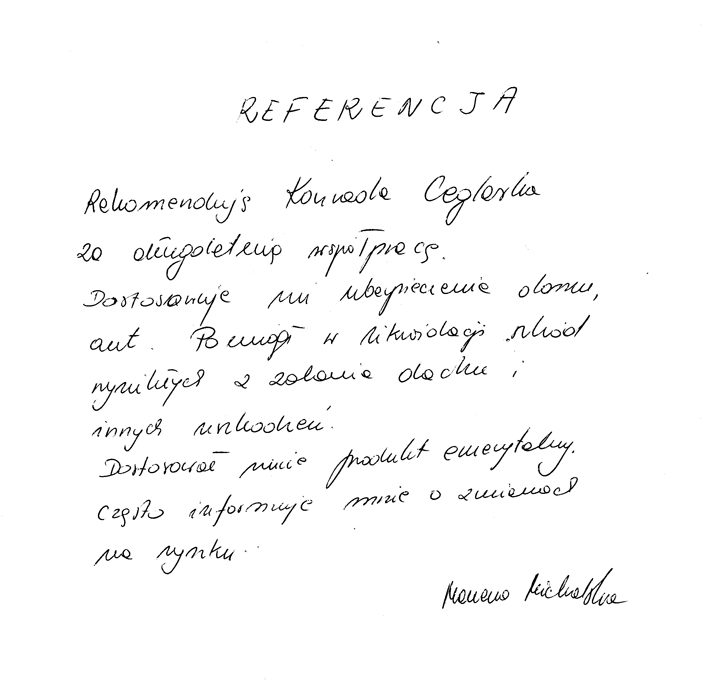 REFERENCJA
Rekomenduję Konrada Ceglarka
za długoletnią współpracę.
Dostosowuje mi ubezpieczenie domu,
aut. Pomógł w likwidacji szkód
wynikłych z zalania dachu i
innych uszkodzeń.
Dostosował mnie produkt emerytalny.
Często informuje mnie o zmianach
na rynku.
Michalska